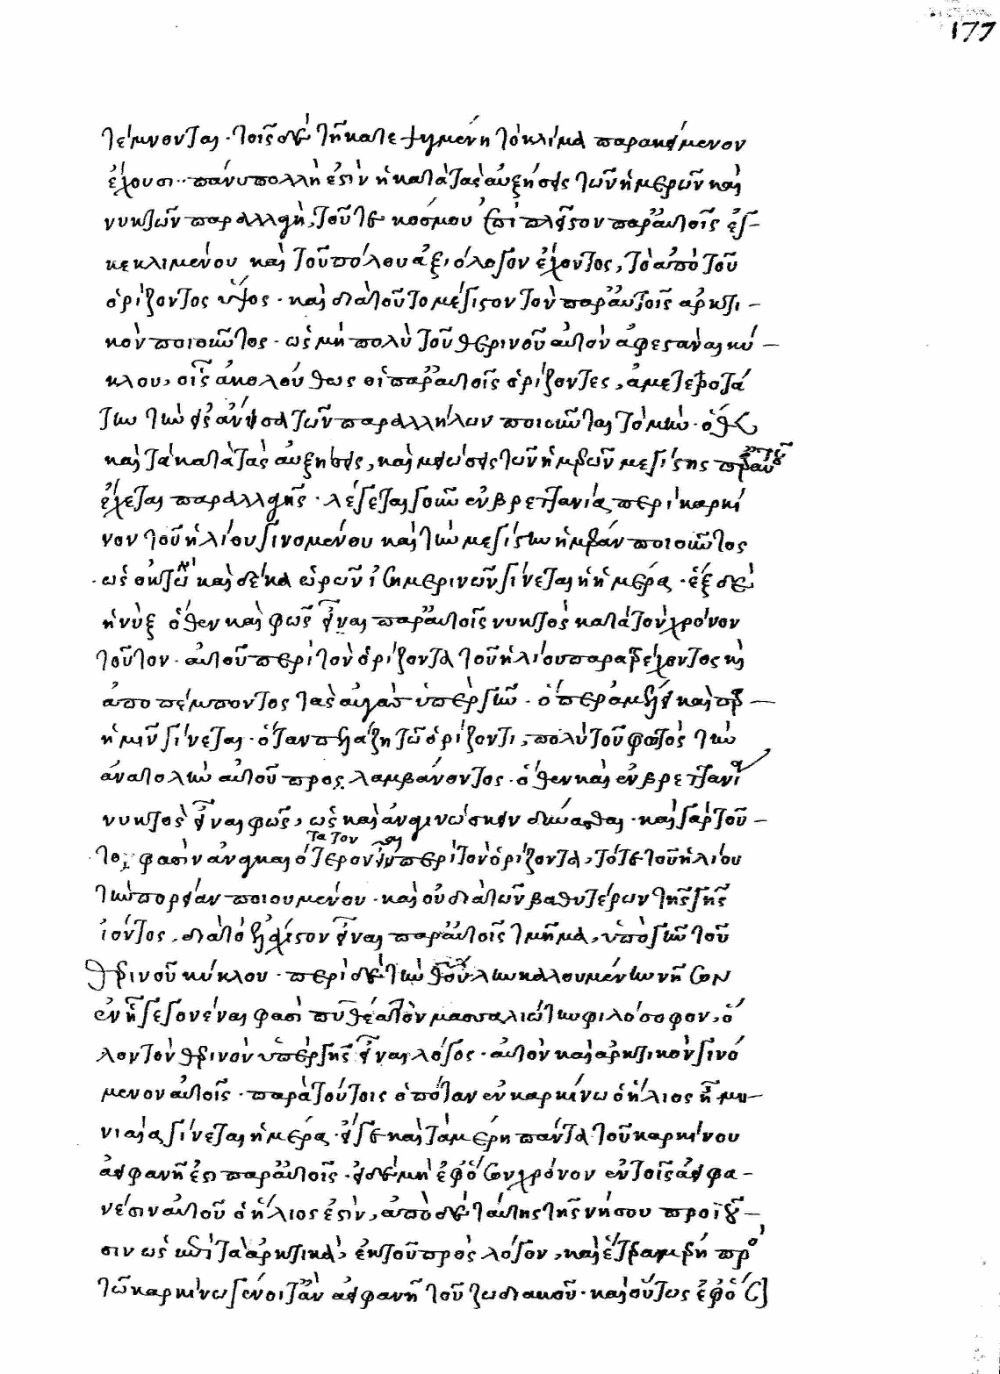 177
τέμνονται · τοῖς δὲ τῇ κατεψυγμένῃ τὸ κλίμα παρακείμενον
ἔχουσι · πάνυ πολλὴ ἐστὶν ἡ κατὰ τὰς αὐξήσεις τῶν ἡμερῶν καὶ
νυκτῶν παραλλαγὴ, τοῦ τε κόσμου ἐπὶ πλεῖστον παρ' αὐτοῖς ἐγ-
κεκλιμένου καὶ τοῦ πόλου ἀξιόλογον ἔχοντος, τὸ ἀπὸ τοῦ
ὁρίζοντος ὕψος · καὶ διὰ τοῦτο μέγιστον τὸν παρ' αὐτοῖς ἀρκτι-
κὸν ποιοῦντος · ὡς μὴ πολὺ τοῦ θερινοῦ αὐτὸν ἀφεστάναι κύ-
κλου, οἷς ἀκολούθως οἱ παρ' αὐτοῖς ὁρίζοντες,
τὴν εἰς ἄνισα τῶν παραλλήλων ποιοῦνται τομήν · ὅθεν
καὶ τὰ κατὰ τὰς αὐξήσεις, καὶ μειώσεις τῶν ἡμερῶν μεγίστης παρ' αὐτοῖς
ἔχεται παραλλαγῆς · λέγεται γοῦν ἐν βρεττανίᾳ περὶ καρκί
νον τοῦ ἡλίου γινομένου καὶ τὴν μεγίστην ἡμέραν ποιοῦντος
ὡς ὀκτὼ καὶ δέκα ὡρῶν ἰσημερινῶν γίνεται ἡ ἡμέρα · ἓξ δὲ
ἡ νὺξ ὅθεν καὶ φῶς εἶναι παρ' αὐτοῖς νυκτὸς κατὰ τὸν χρόνον
τοῦτον · αὐτοῦ περὶ τὸν ὁρίζοντα τοῦ ἡλίου παρατρέχοντος καὶ
ἀποπέμποντος τὰς αὐγὰς ὑπὲρ γῆν · ὅπερ ἀμέλει καὶ παρ'
ἡμῖν γίνεται · ὅταν πελάζῃ τῷ ὁρίζοντι, πολὺ τοῦ φωτὸς τὴν
ἀνατολὴν αὐτοῦ προλαμβάνοντος · ὅθεν καὶ ἐν βρεττανίᾳ
νυκτὸς εἶναι φῶς, ὡς καὶ ἀναγινώσκειν δύνασθαι · καὶ γὰρ τοῦ-
το φασὶν ἀναγκαιότατον εἶναι περὶ τὸν ὁρίζοντα, τότε τοῦ ἡλίου
τὴν πορείαν ποιουμένου · καὶ οὐ διὰ τῶν βαθυτέρων τῆς γῆς
ἰόντος, διὰ τὸ ἐλάχιστον εἶναι παρ' αὐτοῖς τμῆμα, ὑπὸ γῆν τοῦ
θερινοῦ κύκλου · περὶ δὲ τὴν θούλην καλουμένην νῆσον
ἐν ᾗ γεγονέναι φασὶ πυθέαν τὸν μασσαλιώτην φιλόσοφον, ὅ
λον τὸν θερινὸν ὑπὲρ γῆς εἶναι λόγος · αὐτὸν καὶ ἀρκτικὸν γινό
μενον αὐτοῖς · παρὰ τούτοις ὁπόταν ἐν καρκίνῳ ὁ ἥλιος ᾖ μη-
νιαία γίνεται ἡμέρα · εἴγε καὶ τὰ μέρη πάντα τοῦ καρκίνου
ἀειφανῆ ἐστι παρ' αὐτοῖς · εἰ δὲ μὴ ἐφ' ὅσον χρόνον ἐν τοῖς ἀειφα-
νέσιν αὐτοῦ ὁ ἥλιος ἐστίν, ἀπὸ δὲ ταύτης τῆς νήσου προϊοῦ-
σιν ὡς ἐπὶ τὰ ἀρκτικὰ, ἐκ τοῦ πρὸς λόγον, καὶ ἕτερα μέρη πρὸς
τῷ καρκίνῳ γένοιτ' ἂν ἀειφανῆ τοῦ ζωδιακοῦ · καὶ οὕτως ἐφ' ὅσον